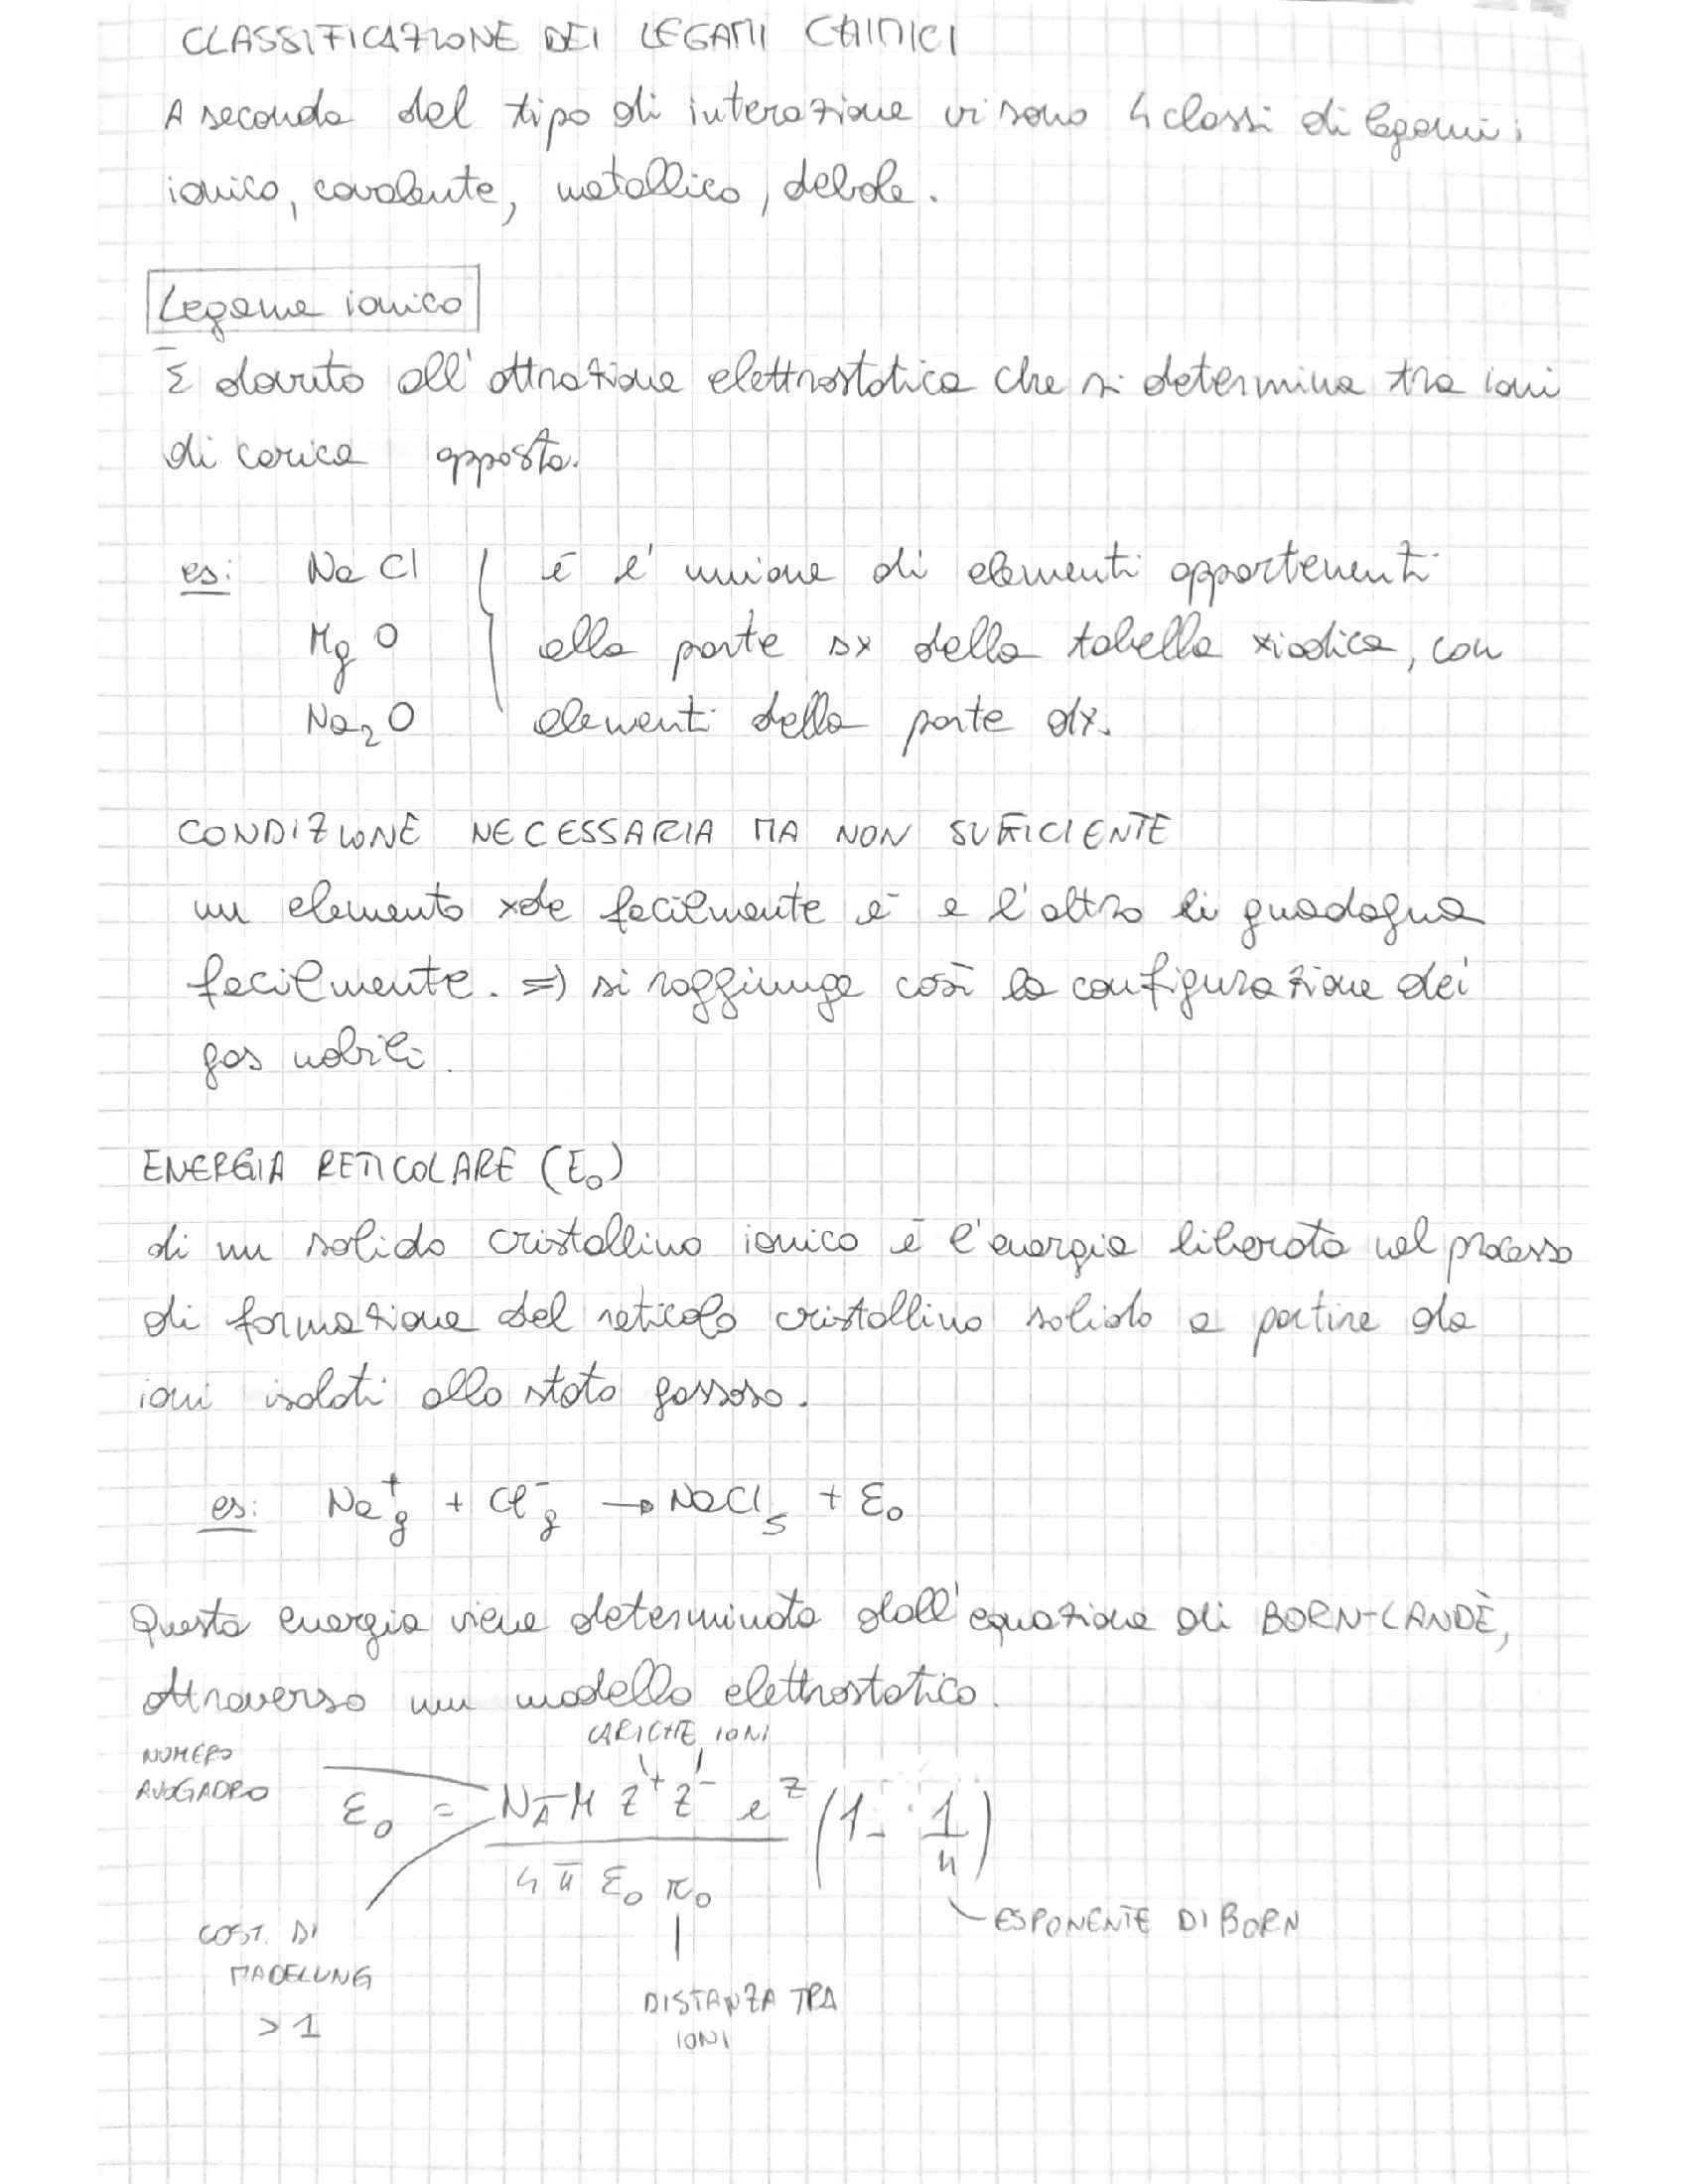 CLASSIFICAZIONE DEI LEGAMI CHIMICI
A seconda del tipo di interazione vi sono 4 classi di legami:
ionico, covalente, metallico, debole.
Legame ionico
È dovuto all'attrazione elettrostatica che si determina tra ioni
di carica opposta.
es: NaCl { è l'unione di elementi appartenenti
MgO alla parte sx della tabella xiodica, con
Na₂O elementi della parte dx.
CONDIZIONE NECESSARIA MA NON SUFFICIENTE
un elemento xde facilmente e⁻ e l'altro li guadagna
facilmente. => si raggiunge così la configurazione dei
gas nobili.
ENERGIA RETICOLARE (E₀)
di un solido cristallino ionico è l'energia liberata nel processo
di formazione del reticolo cristallino solido a partire da
ioni isolati allo stato gassoso.
es: Na⁺g + Cl⁻g → NaCls + E₀
Questa energia viene determinata dall'equazione di BORN-LANDÈ,
attraverso un modello elettrostatico.
CARICHE IONI
NUMERO
AVOGADRO
E₀ = N_A M Z⁺ Z⁻ e² (1 - 1/n)
4 π ε₀ r₀
ESPONENTE DI BORN
COST. DI
MADELUNG
> 1
DISTANZA TRA
IONI